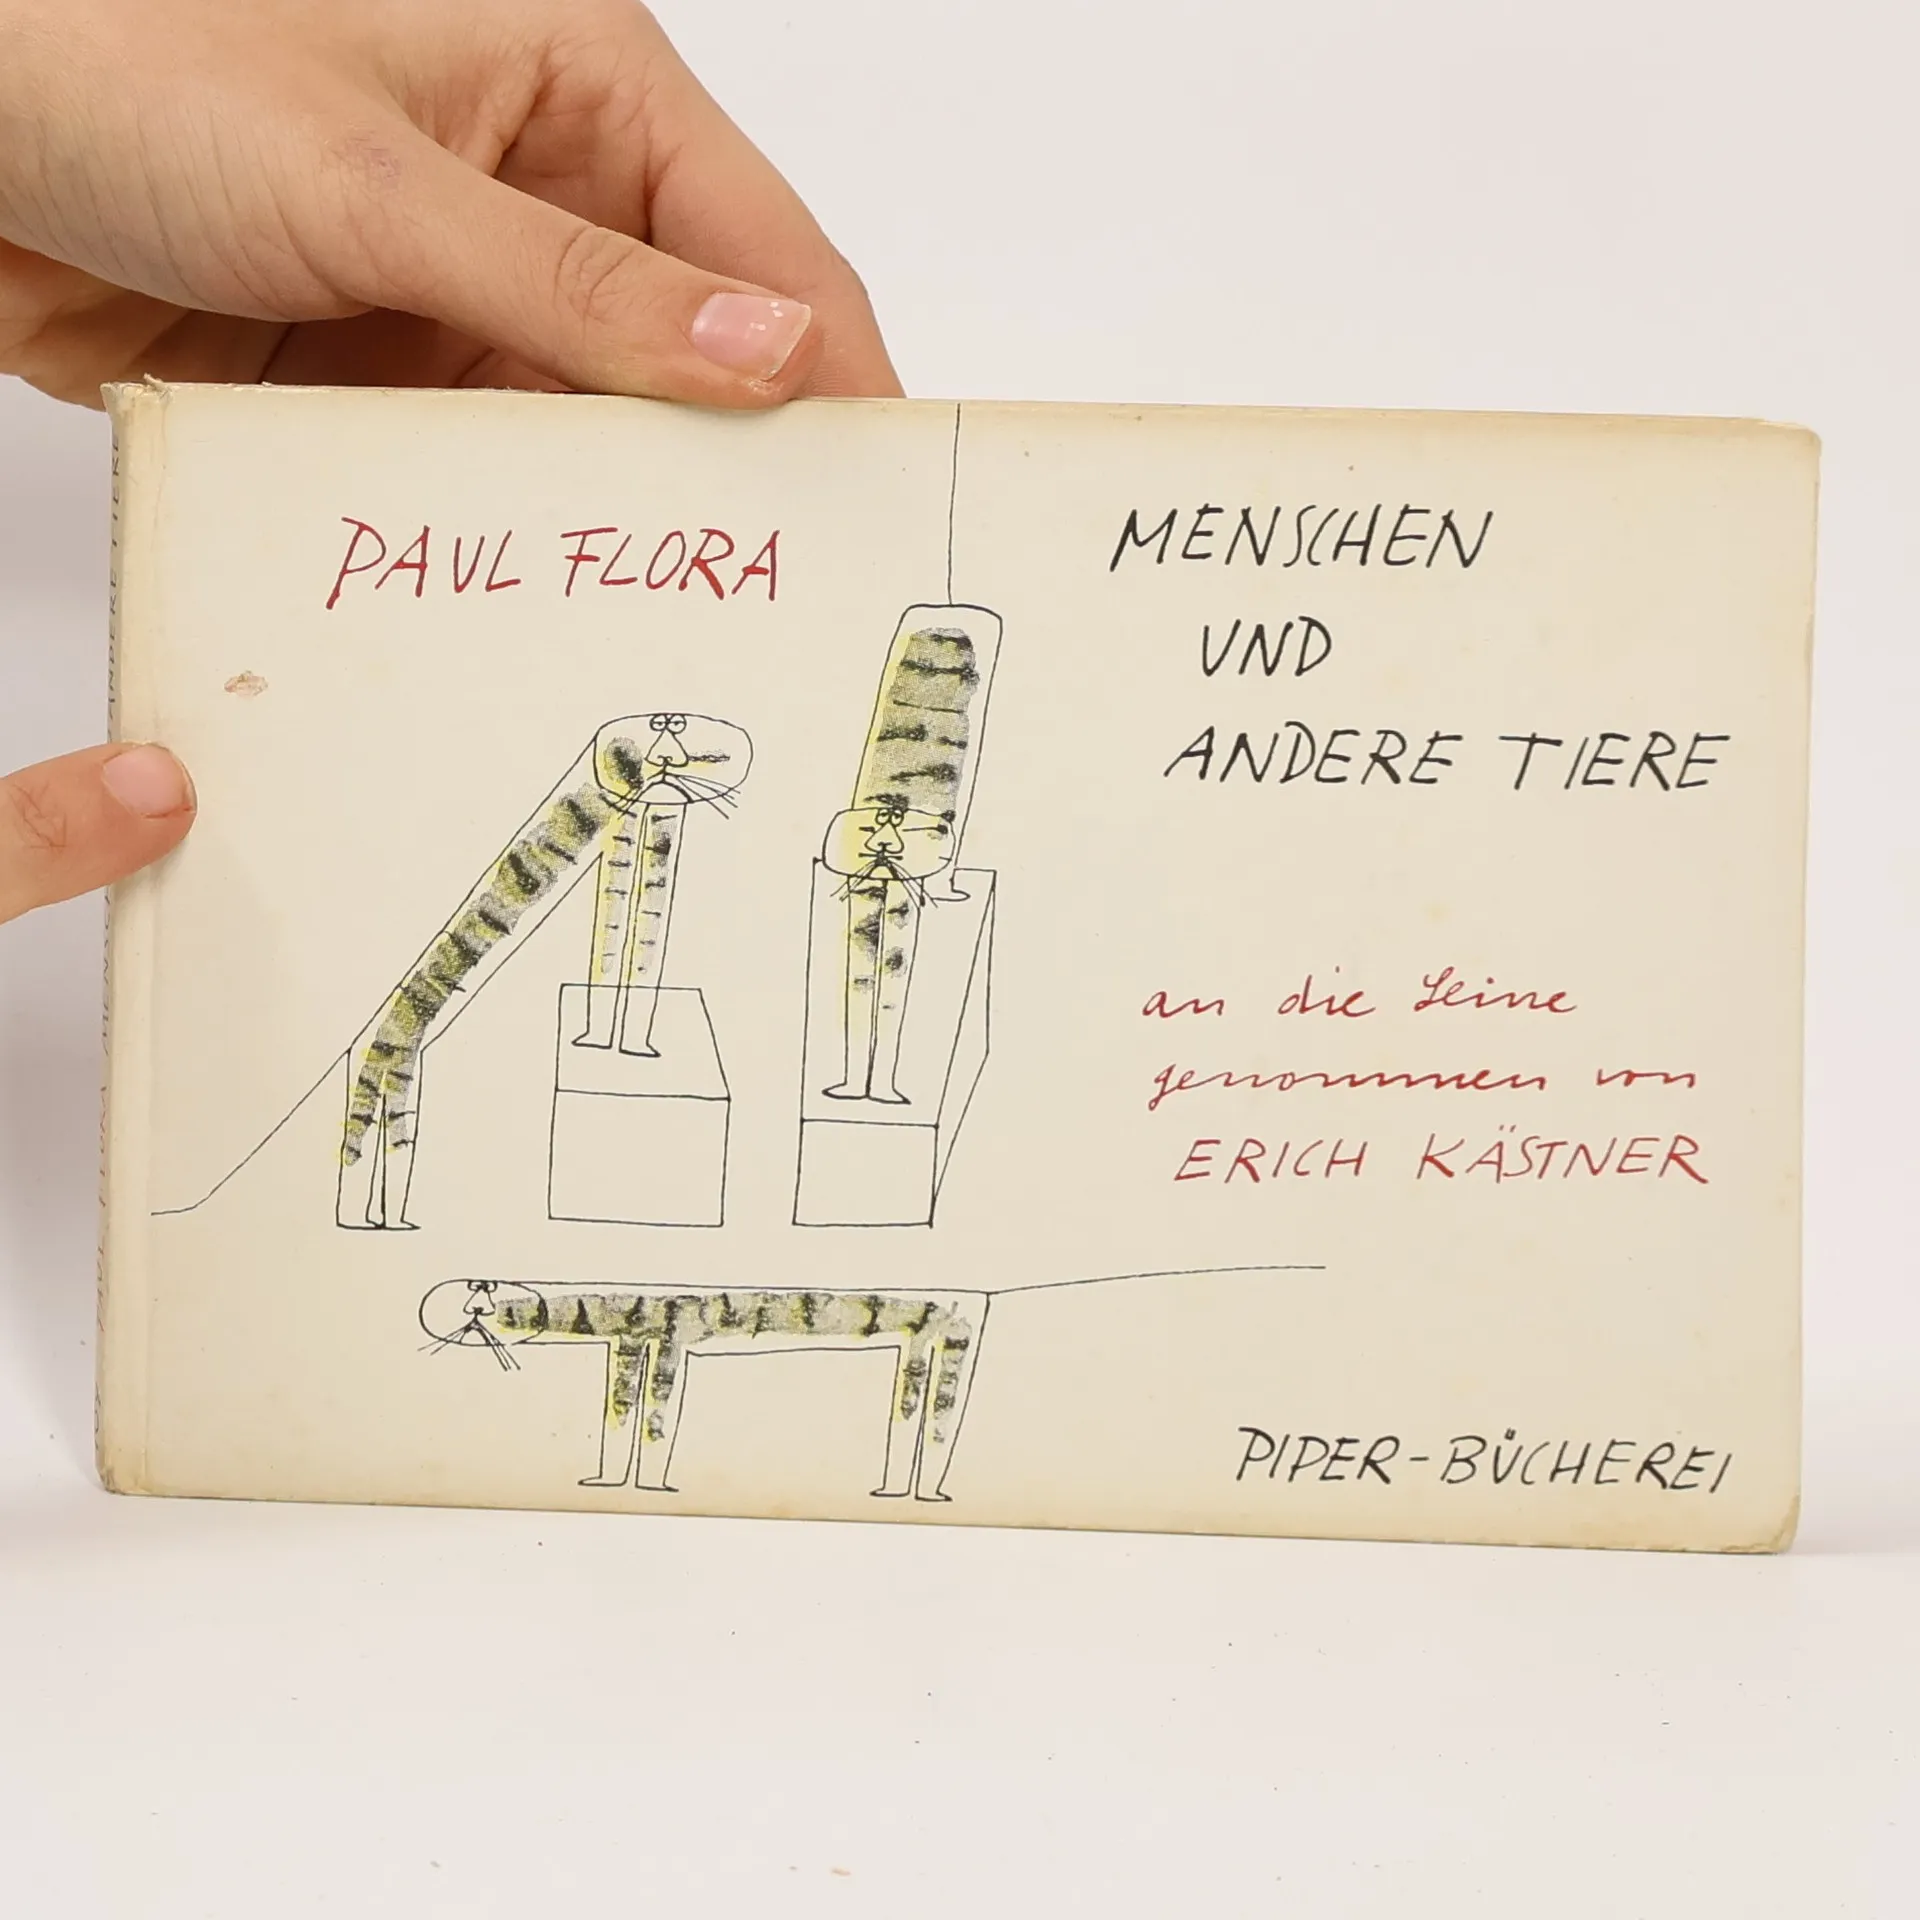 PAUL FLORA
MENSCHEN
UND
ANDERE TIERE
an die Leine
genommen von
ERICH KÄSTNER
PIPER-BÜCHEREI
PAUL FLORA MENSCHEN UND ANDERE TIERE